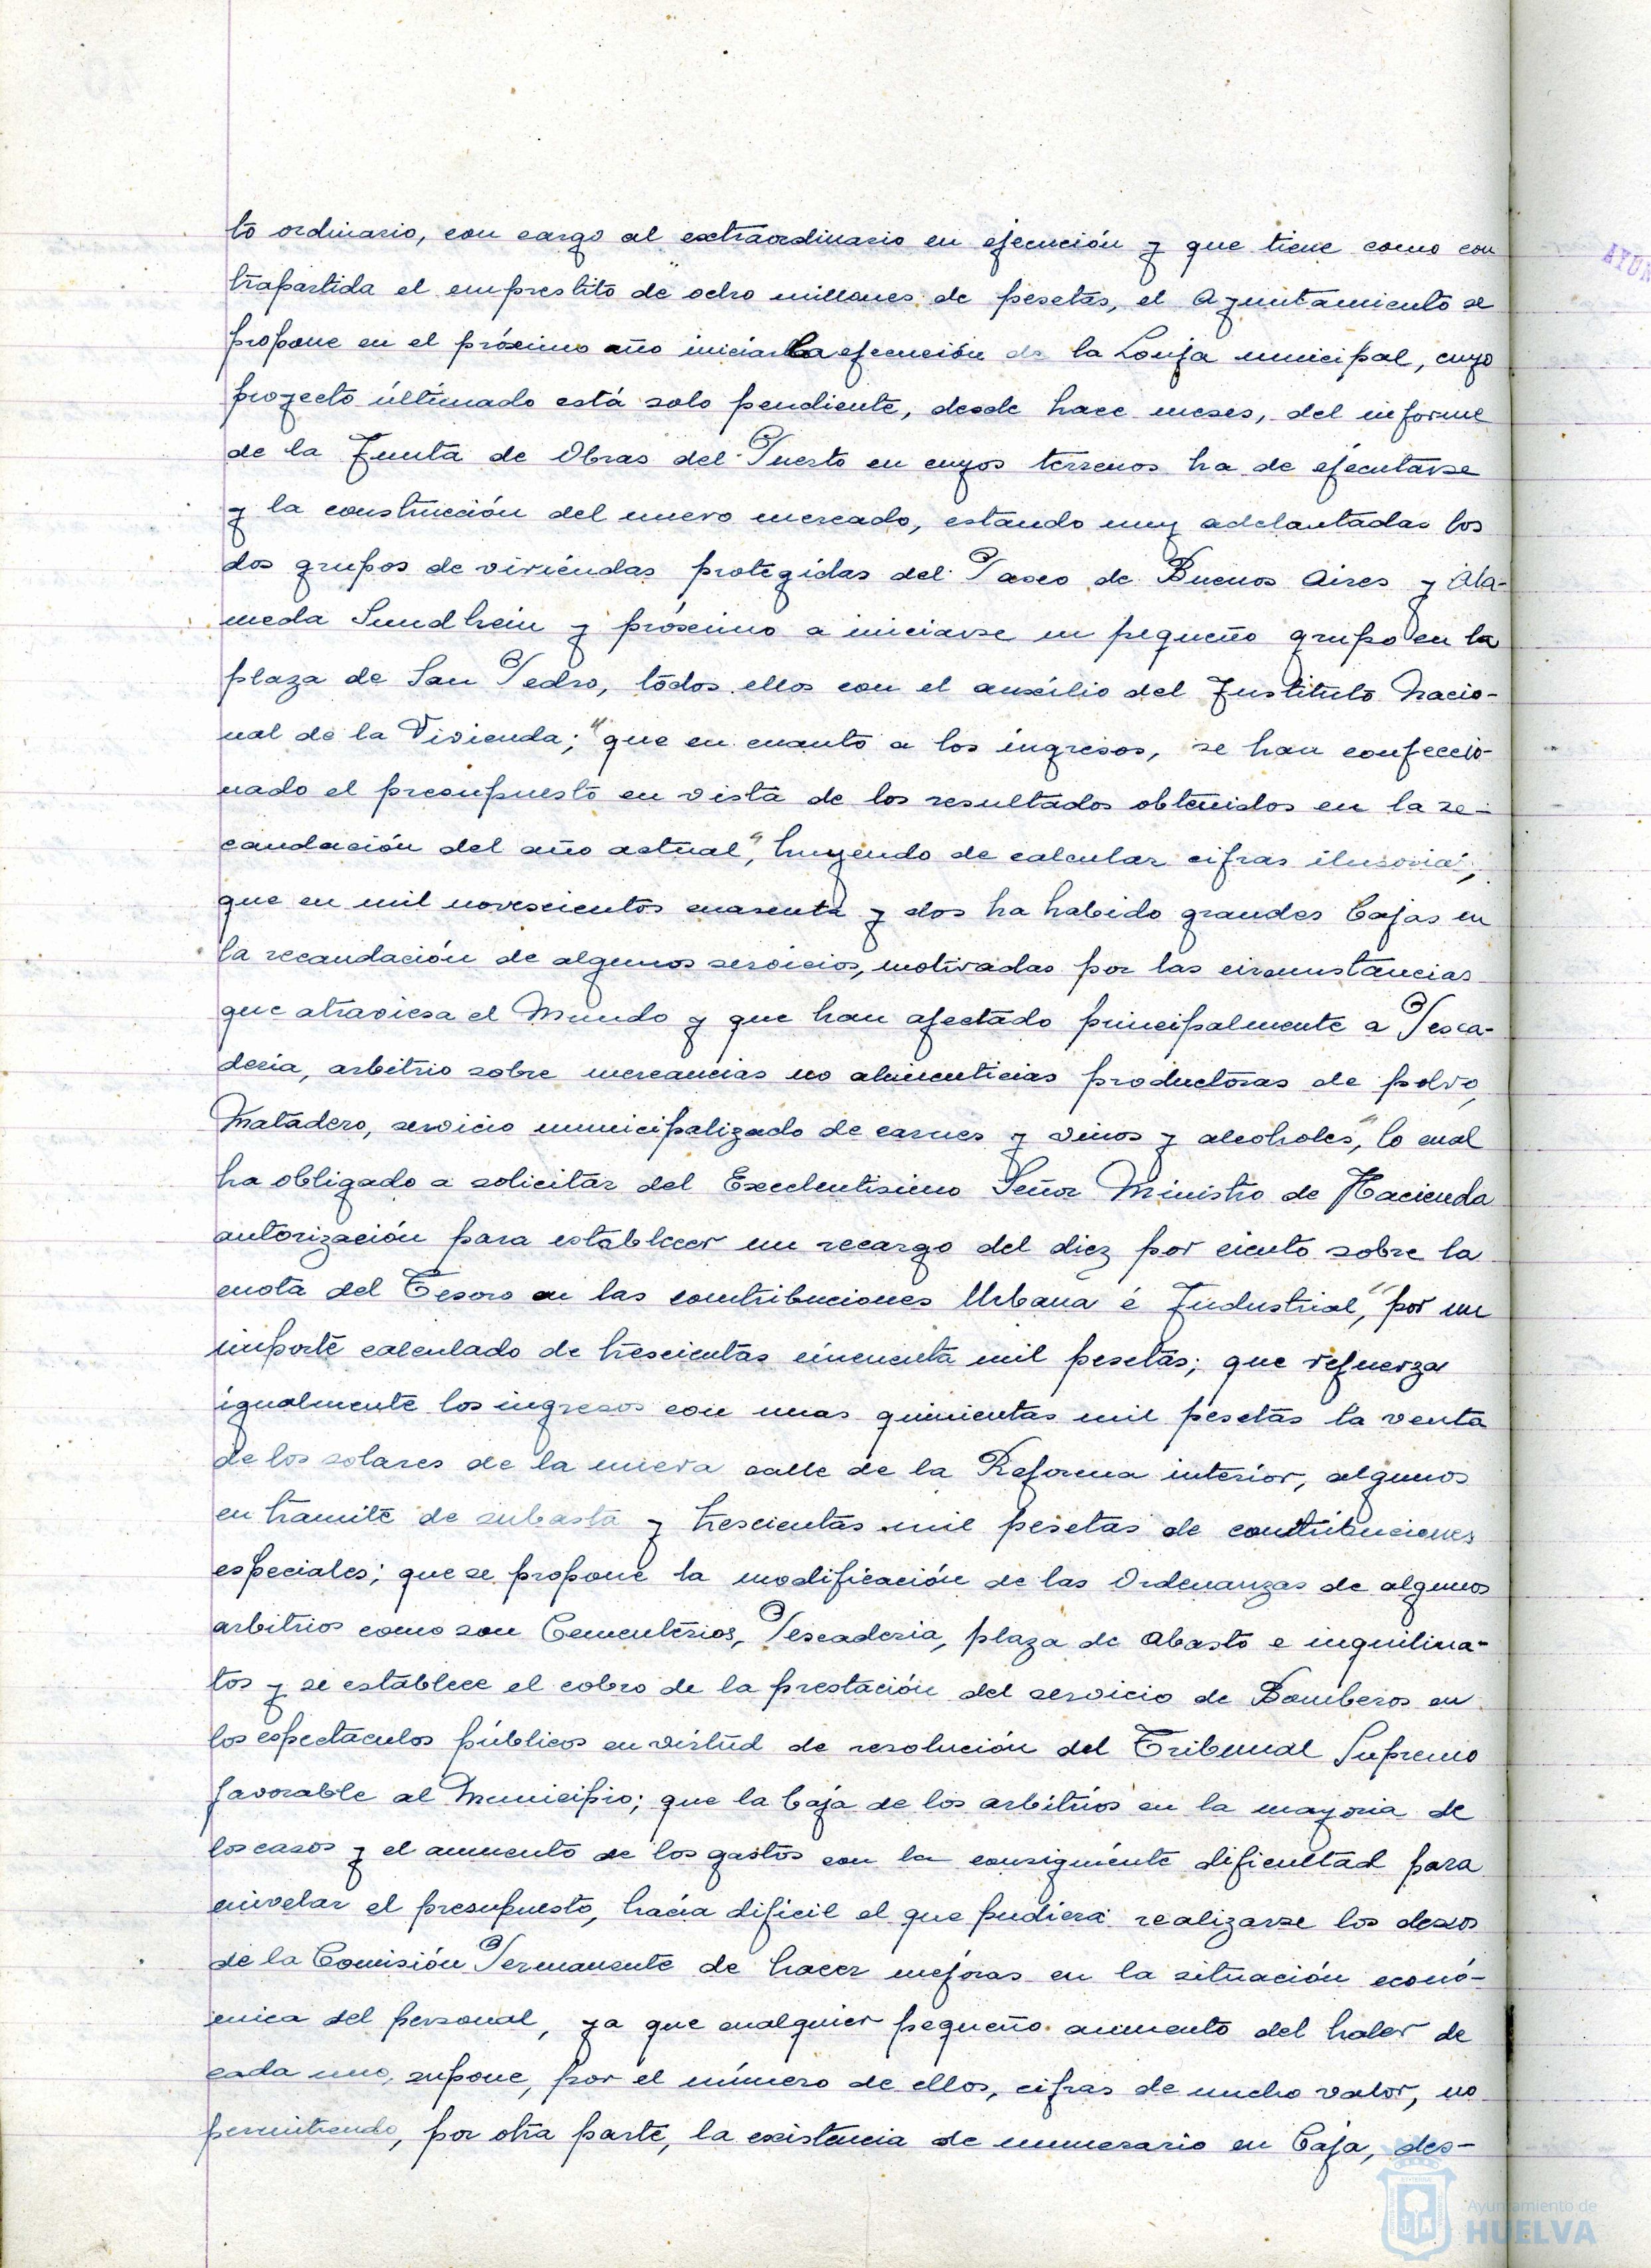 to ordinario, con cargo al extraordinario en ejecución y que tiene como con
trapartida el emprestito de "ocho millones de pesetas, el Ayuntamiento se
propone en el próximo año iniciar la ejecución de la Lonja municipal, cuyo
proyecto últimado está solo pendiente, desde hace meses, del informe
de la Junta de Obras del Puerto en cuyos terrenos ha de ejecutarse
y la construcción del nuevo mercado, estando muy adelantadas los
dos grupos de viviendas protegidas del Paseo de Buenos Aires y Ala-
meda Sundhein y próximo a iniciarse un pequeño grupo en la
plaza de San Pedro, todos ellos con el auxilio del Instituto Nacio-
nal de la Vivienda;" que en cuanto a los ingresos, se han confeccio-
nado el presupuesto en vista de los resultados obtenidos en la re-
caudación del año actual", huyendo de calcular cifras ilusorias,
que en mil novescientos cuarenta y dos ha habido grandes bajas en
la recaudación de algunos servicios, motivadas por las circunstancias
que atraviesa el Mundo y que han afectado principalmente a Pesca-
deria, arbitrio sobre mercancias no alimenticias productoras de polvo,
Matadero, servicio municipalizado de carnes y vinos y alcoholes", lo cual
ha obligado a solicitar del Excelentisimo Señor Ministro de Hacienda
autorización para establecer un recargo del diez por ciento sobre la
cuota del Tesoro en las contribuciones Urbana é Industrial", por un
importe calculado de trescientas cincuenta mil pesetas; que refuerza
igualmente los ingresos con unas quinientas mil pesetas la venta
de los solares de la nueva calle de la Reforma interior, algunos
en tramite de subasta y trescientas mil pesetas de contribuciones
especiales; que se propone la modificación de las Ordenanzas de algunos
arbitrios como son Cementerios, Pescaderia, plaza de Abasto e inquilina-
tos y se establece el cobro de la prestación del servicio de Bomberos en
los espectaculos públicos en virtud de resolución del Tribunal Supremo
favorable al Municipio; que la baja de los arbitrios en la mayoria de
los casos y el aumento de los gastos con la consiguiente dificultad para
nivelar el presupuesto, hacia dificil el que pudiera realizarse los deseos
de la Comisión Permanente de hacer mejoras en la situación econó-
mica del personal, ya que cualquier pequeño aumento del haber de
cada uno, supone, por el número de ellos, cifras de mucho valor, no
permitiendo, por otra parte, la existencia de numerario en Caja, des-
AYUN
Ayuntamiento de
HUELVA